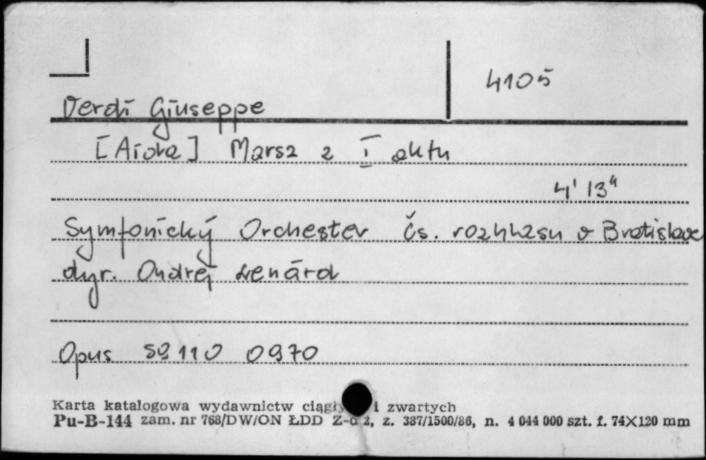 4105
Verdi Giuseppe
[Aida] Marsz z I aktu
4' 13"
Symfonický Orchester Čs. rozhlasu v Bratislave
dyr. Ondrej Lenárd
Opus 59 110 0970
Karta katalogowa wydawnictw i zwartych
Pu-B-144 zam. nr 768/DW/ON ŁDD z. 387/1500/86, n. 4 044 000 szt. f. 74X120 mm